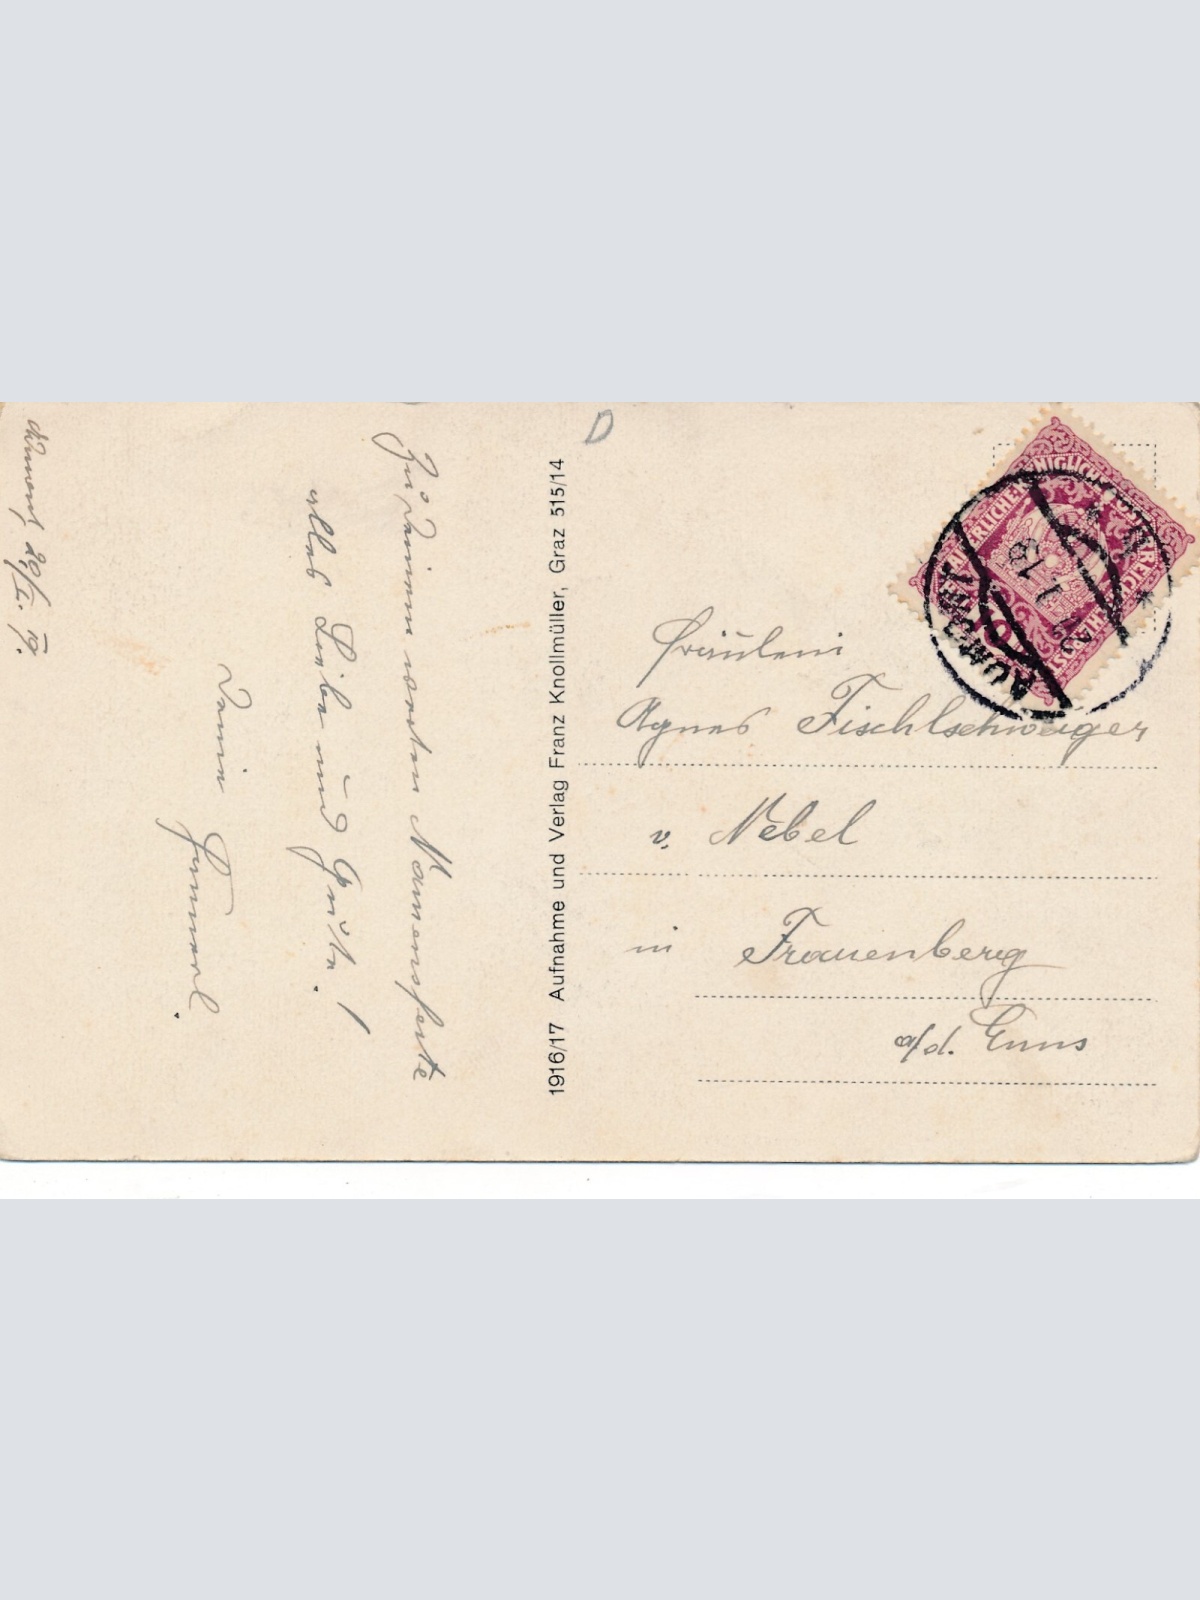 D
Admont, 20/I. 19.
Zu Deinem werten Namensfeste
alles Liebe und Gute. !
Deine
1916/17 Aufnahme und Verlag Franz Knollmüller, Graz 515/14
Fräulein
Agnes Fischlschweiger
v. Nebel
in Frauenberg
a/d. Enns
ADMONT